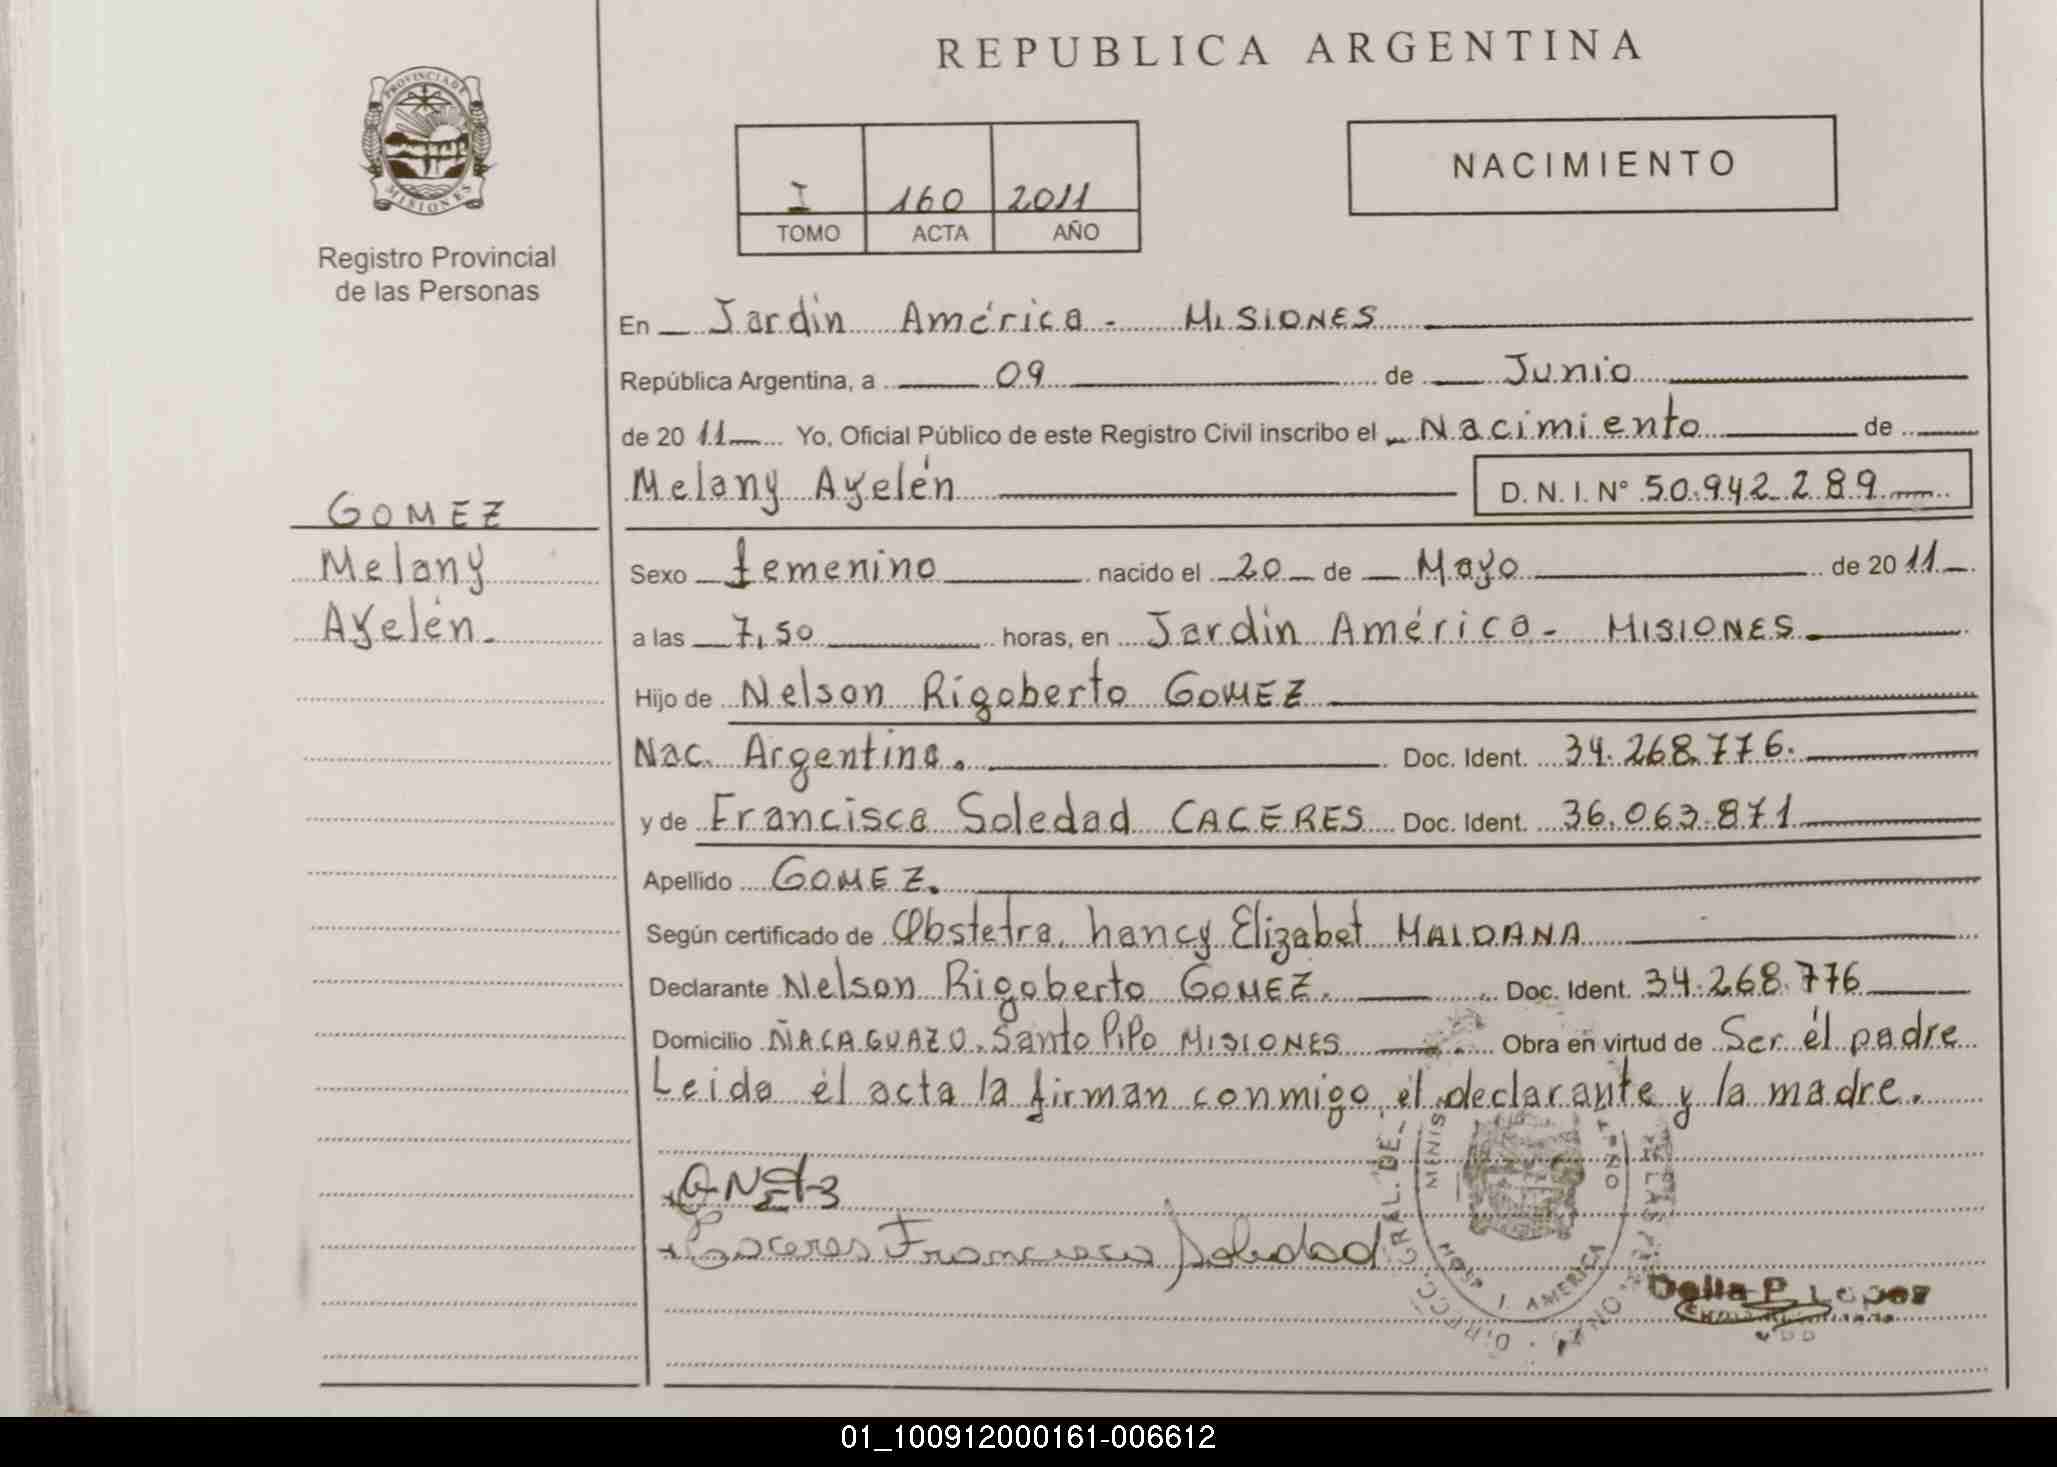 REPUBLICA ARGENTINA
PROVINCIA DE
MISIONES
Registro Provincial
de las Personas
I 160 2011
TOMO ACTA AÑO
NACIMIENTO
En Jardín América - MISIONES
República Argentina, a 09 de Junio
de 2011 Yo, Oficial Público de este Registro Civil inscribo el Nacimiento de
Melany Ayelén D. N. I. Nº 50.942.289
GOMEZ
Melany
Ayelén.
Sexo femenino nacido el 20 de Mayo de 2011
a las 7,50 horas, en Jardín América - MISIONES
Hijo de Nelson Rigoberto GOMEZ
Nac. Argentina. Doc. Ident. 34.268.776.
y de Francisca Soledad CACERES Doc. Ident. 36.063.871
Apellido GOMEZ.
Según certificado de Obstetra, Nancy Elizabet MALDANA
Declarante Nelson Rigoberto GOMEZ. Doc. Ident. 34.268.776
Domicilio ÑACAGUAZO. Santo PiPo MISIONES Obra en virtud de Ser él padre
Leida él acta la firman conmigo, él declarante y la madre.
Caceres Francisca Soledad
DIRECC. GRAL. DE
MINIS
HOSP. J. AMERICA
Delia P. Lopez
01_100912000161-006612